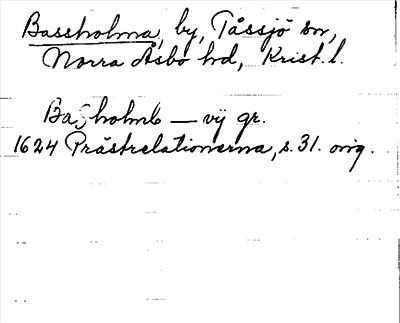 Bassholma, by, Tåssjö sn,
Norra Åsbo hd, Krist. l.
Basholmb — vij gr.
1624 Prästrelationerna, s. 31. orig.